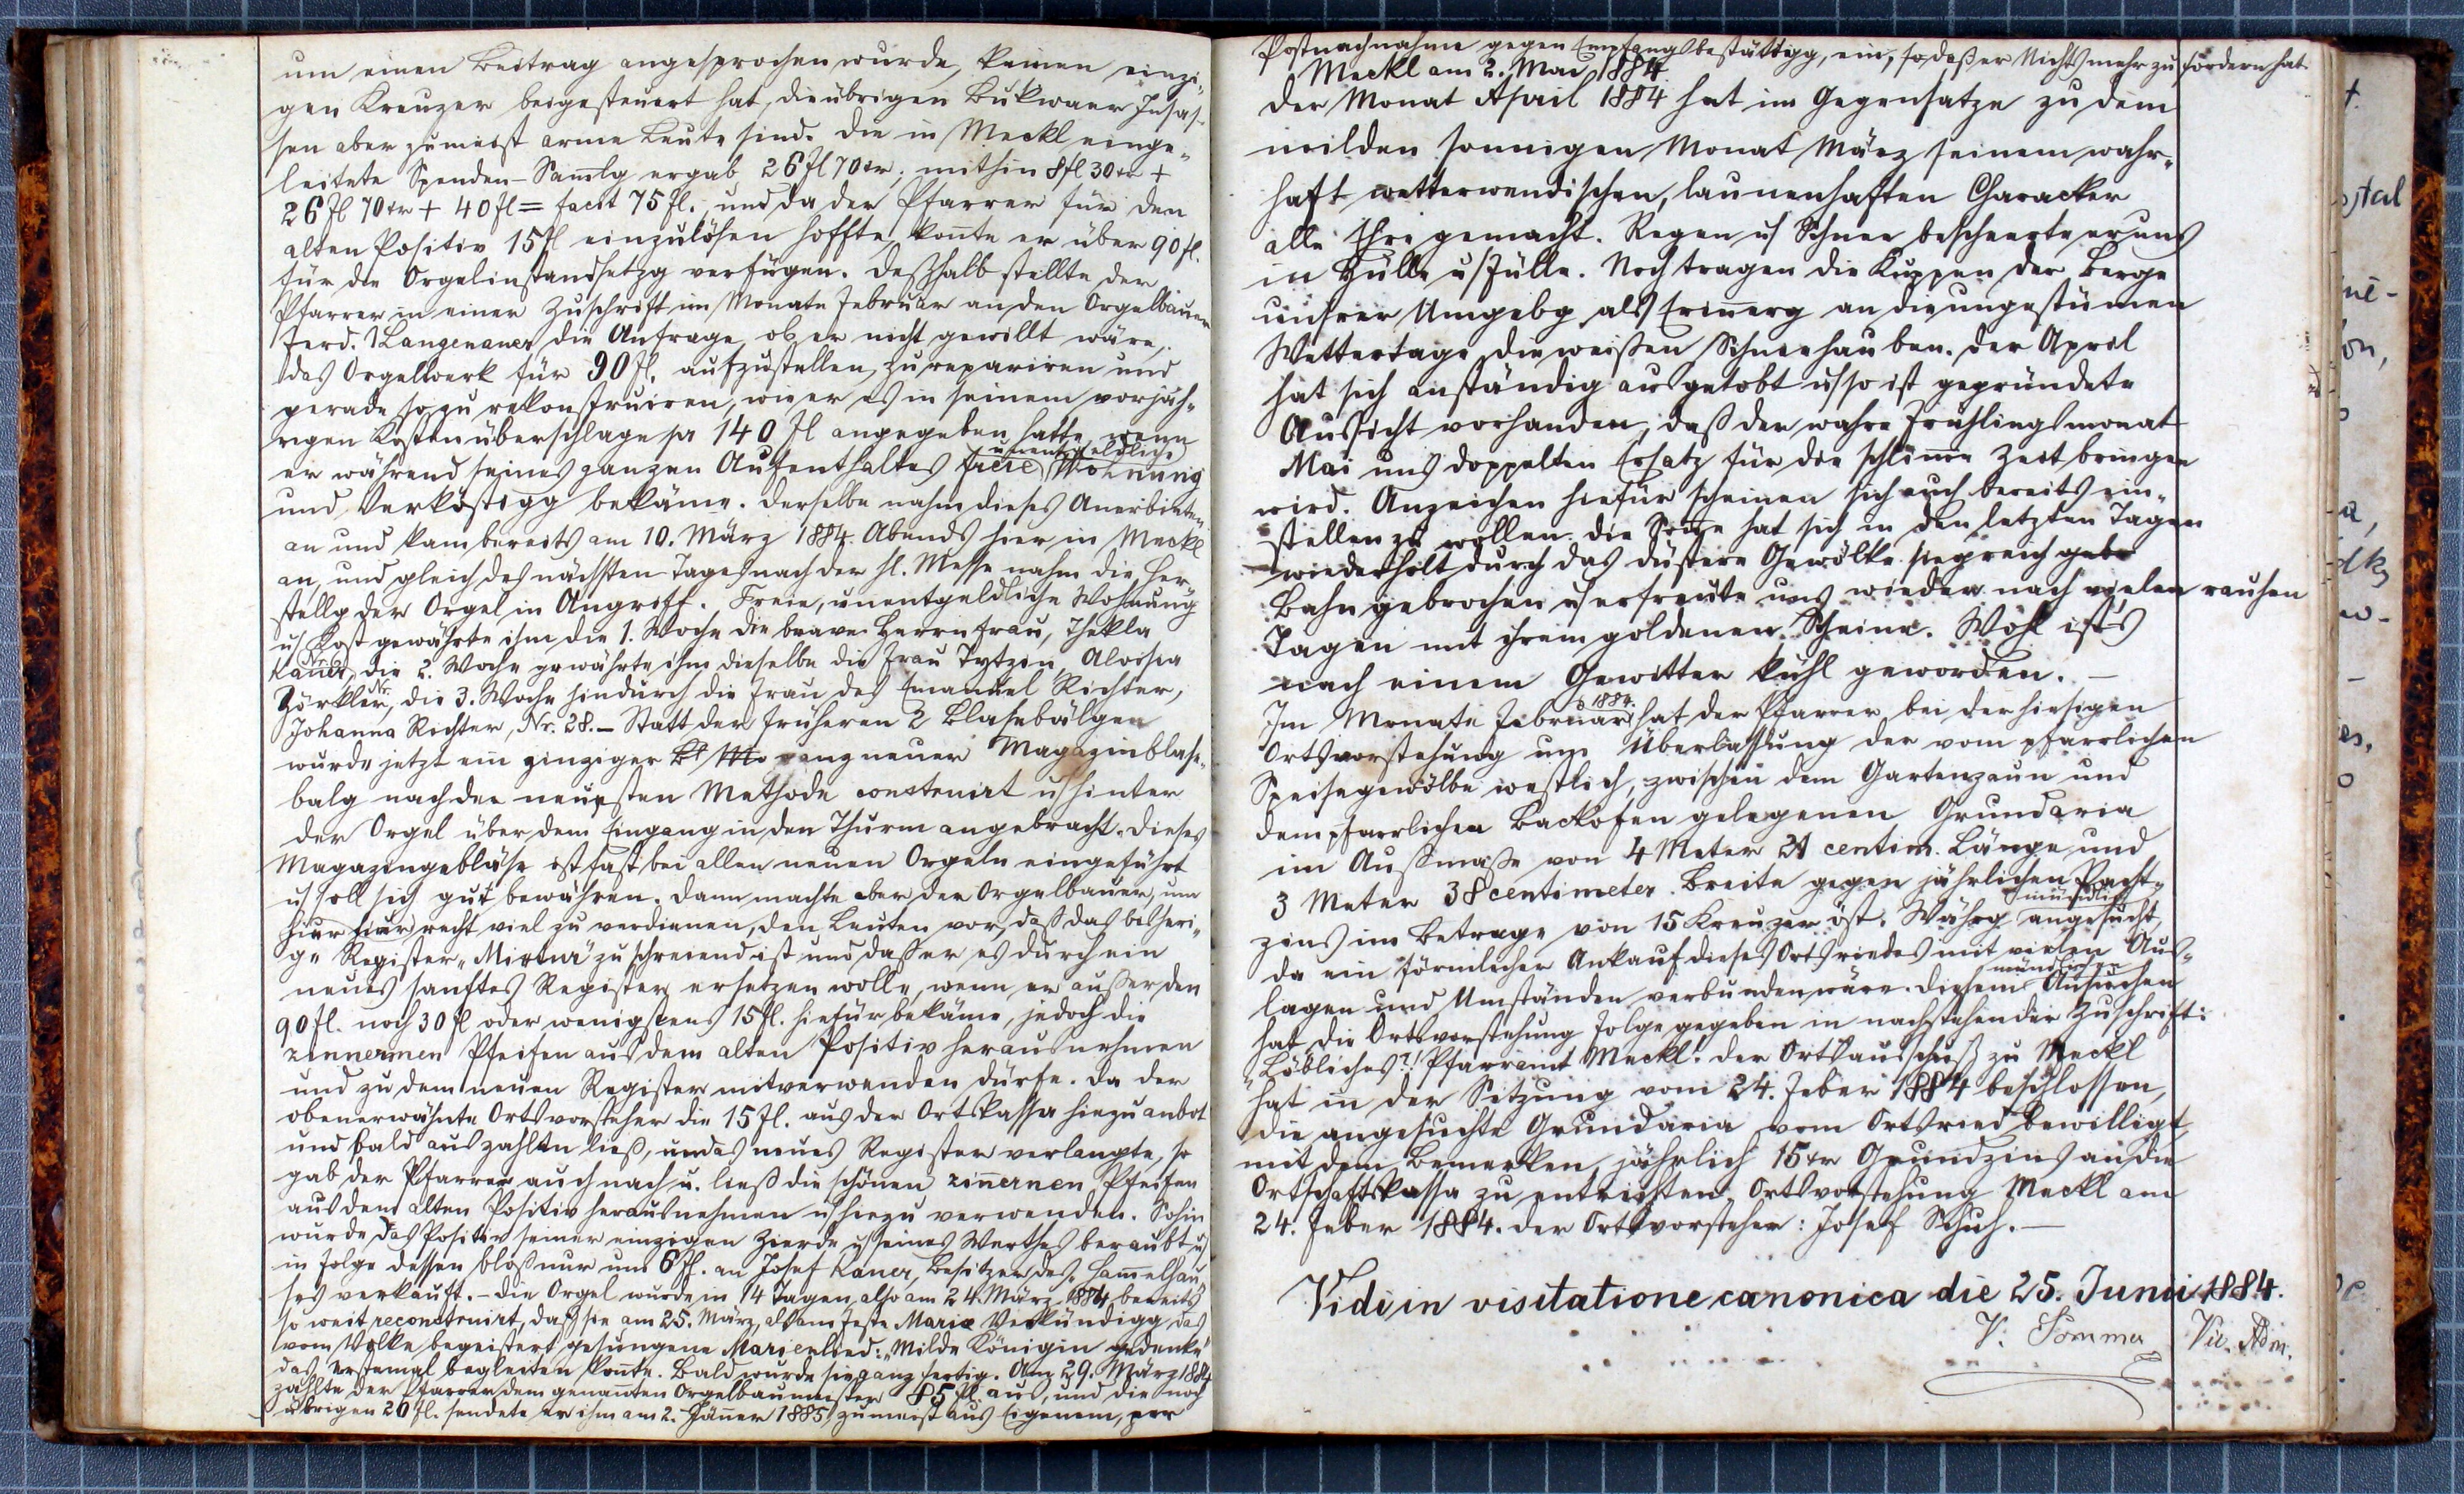 um einen Beitrag angesprochen wurde, keinen einzi-
gen Kreuzer beigesteuert hat, die übrigen Bukwaer Insas-
sen aber zumeist arme Leute sind. Die in Meckl einge-
leitete Spenden-Samlg ergab 26 fl 70 kr; mithin 8 fl 30 kr +
26 fl 70 kr + 40 fl = facit 75 fl. und da der Pfarrer für den
alten Positiv 15 fl einzulösen hoffte, konte er über 90 fl.
für die Orgelinstandsetzg verfügen. Deßhalb stellte der
Pfarrer in einer Zuschrift im Monate Februar an den Orgelbauer
Ferd. Langenauer die Anfrage, ob er nicht gewillt wäre,
das Orgelwerk für 90 fl. aufzustellen, zu repariren und
gerade so zu rekonstruiren, wie er es in seinem vorjäh-
rigen Kostenüberschlage pr 140 fl angegeben hatte, wenn
er während seines ganzen Aufenthaltes freie unentgeldliche Wohnung
und Verköstigg bekäme. Derselbe nahm dieses Anerbieten
an und kam bereits am 10. März 1884 Abends hier in Meckl
an, und gleich des nächsten Tages nach der hl. Messe nahm die Her-
stellg der Orgel in Angriff. Freie, unentgeldliche Wohnung
u Kost gewährte ihm die 1. Woche die brave Herrnfrau, Thekla
Kauer, Nr. 6, die 2. Woche gewährte ihm dieselbe die Frau Aloisia
Zörkler, Nr., die 3. Woche hindurch die Frau des Emanuel Richter,
Johanna Richter, Nr. 28. – Statt der früheren 2 Blasebälgen
wurde jetzt ein einziger ganz neuer Magazinblase-
balg nach der neuesten Methode construirt u hinter
der Orgel über dem Eingang in den Thurm angebracht. Dieses
Magazingebläse ist fast bei allen neuen Orgeln eingeführt
u soll sich gut bewähren. Dann machte aber der Orgelbauer, um
hier recht viel zu verdienen, den Leuten vor, daß das bisheri-
ge Register „Mixtur" zu schreiend ist und daß er es durch ein
neues sanftes Register ersetzen wolle, wenn er außer den
90 fl. noch 30 fl oder wenigstens 15 fl. hiefür bekäme, jedoch die
zinnernen Pfeifen aus dem alten Positiv herausnehmen
und zu dem neuen Register mitverwenden dürfe. Da der
obenerwähnte Ortsvorsteher die 15 fl. aus der Ortskassa hiezu anbot
und bald auszahlen ließ, und das neues Register verlangte, so
gab der Pfarrer auch nach u. ließ die schönen zinernen Pfeifen
aus dem alten Positiv herausnehmen u hiezu verwenden. Sohin
wurde das Positiv seiner einzigen Zierde u seines Werthes beraubt u
in Folge dessen blos nur um 6 fl. an Josef Kauer, Besitzer des Hamelhau-
ses verkauft. – Die Orgel wurde in 14 Tagen also am 24. März 1884 bereits
so weit reconstruirt, daß sie am 25. März, als am Feste Mariæ Verkündigg das
vom Volke begeistert gesungene Marienlied: „Milde Königin gedenke"
das erstemal begleiten konte. Bald wurde sie ganz fertig. Am 29. März 1884
zahlte der Pfarrer dem genanten Orgelbaumeister 85 fl. aus, und die noch
übrigen 20 fl. sendete er ihm am 2. Jänner 1885, zumeist aus Eigenem, per
Postnachnahme gegen Empfangsbestättigg, ein, so daß er Nichts mehr zu fordern hat.
Meckl am 2. Mai 1884.
Der Monat April 1884 hat im Gegensatze zu dem
milden sonnigen Monat März seinem wahr-
haft wetterwendischen, launenhaften Character
alle Ehre gemacht. Regen u Schnee bescheerte er uns
in Hülle u Fülle. Noch tragen die Kuppen der Berge
unsrer Umgebg als Erinerg an die ungestümen
Wettertage die weißen Schneehauben. Der April
hat sich anständig ausgetobt u so ist gegründete
Aussicht vorhanden, daß der wahre Frühlingsmonat
Mai uns doppelten Ersatz für die schlime Zeit bringen
wird. Anzeichen hiefür scheinen sich auch bereits ein-
stellen zu wollen. Die Sone hat sich in den letzten Tagen
wiederholt durch das düstere Gewölke siegreich gebr
Bahn gebrochen u erfreute uns wieder nach vielen rauhen
Tagen mit ihrem goldenen Scheine. Wohl ist's
nach einem Gewitter kühl geworden. –
Im Monate Februar 1884. hat der Pfarrer bei der hiesigen
Ortsvorstehung um Überlassung der vom pfarrlichen
Speisegewölbe westlich, zwischen dem Gartenzaun und
dem pfarrlichen Backofen gelegenen Grundaria
im Ausmaße von 4 Meter 21 centim. Länge und
3 Meter 38 centimeter Breite gegen jährlichen Pacht-
zins im Betrage von 15 Kreuzer öst. Währg mündlich angesucht,
da ein förmlicher Ankauf dieses Ortsriedes mit vielen Aus-
lagen und Umständen verbunden wäre. Diesem mündlichen Ansuchen
hat die Ortsvorstehung Folge gegeben in nachstehender Zuschrift:
„Löbliches?! Pfarramt Meckl! Der Ortsausschuß zu Meckl
hat in der Sitzung vom 24. Feber 1884 beschlossen,
die angesuchte Grundaria vom Ortsried bewilligt,
mit dem Bemerken, jährlich 15 kr Grundzins an die
Ortschaftskassa zu entrichten. Ortsvorstehung Meckl am
24. Feber 1884. Der Ortsvorsteher: Josef Schuh. –
Vidi in visitatione canonica die 25. Junii 1884.
V. Sommer Vic. Adm.